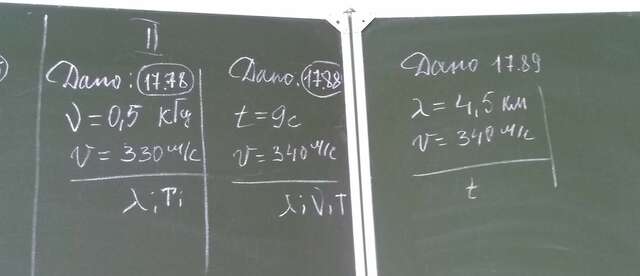 II
Дано: 17.78
ν = 0,5 кГц
v = 330 м/с
λ; T;
Дано: 17.88
t = 9с
v = 340 м/с
λ; ν; T
Дано 17.89
λ = 4,5 км
v = 340 м/с
t